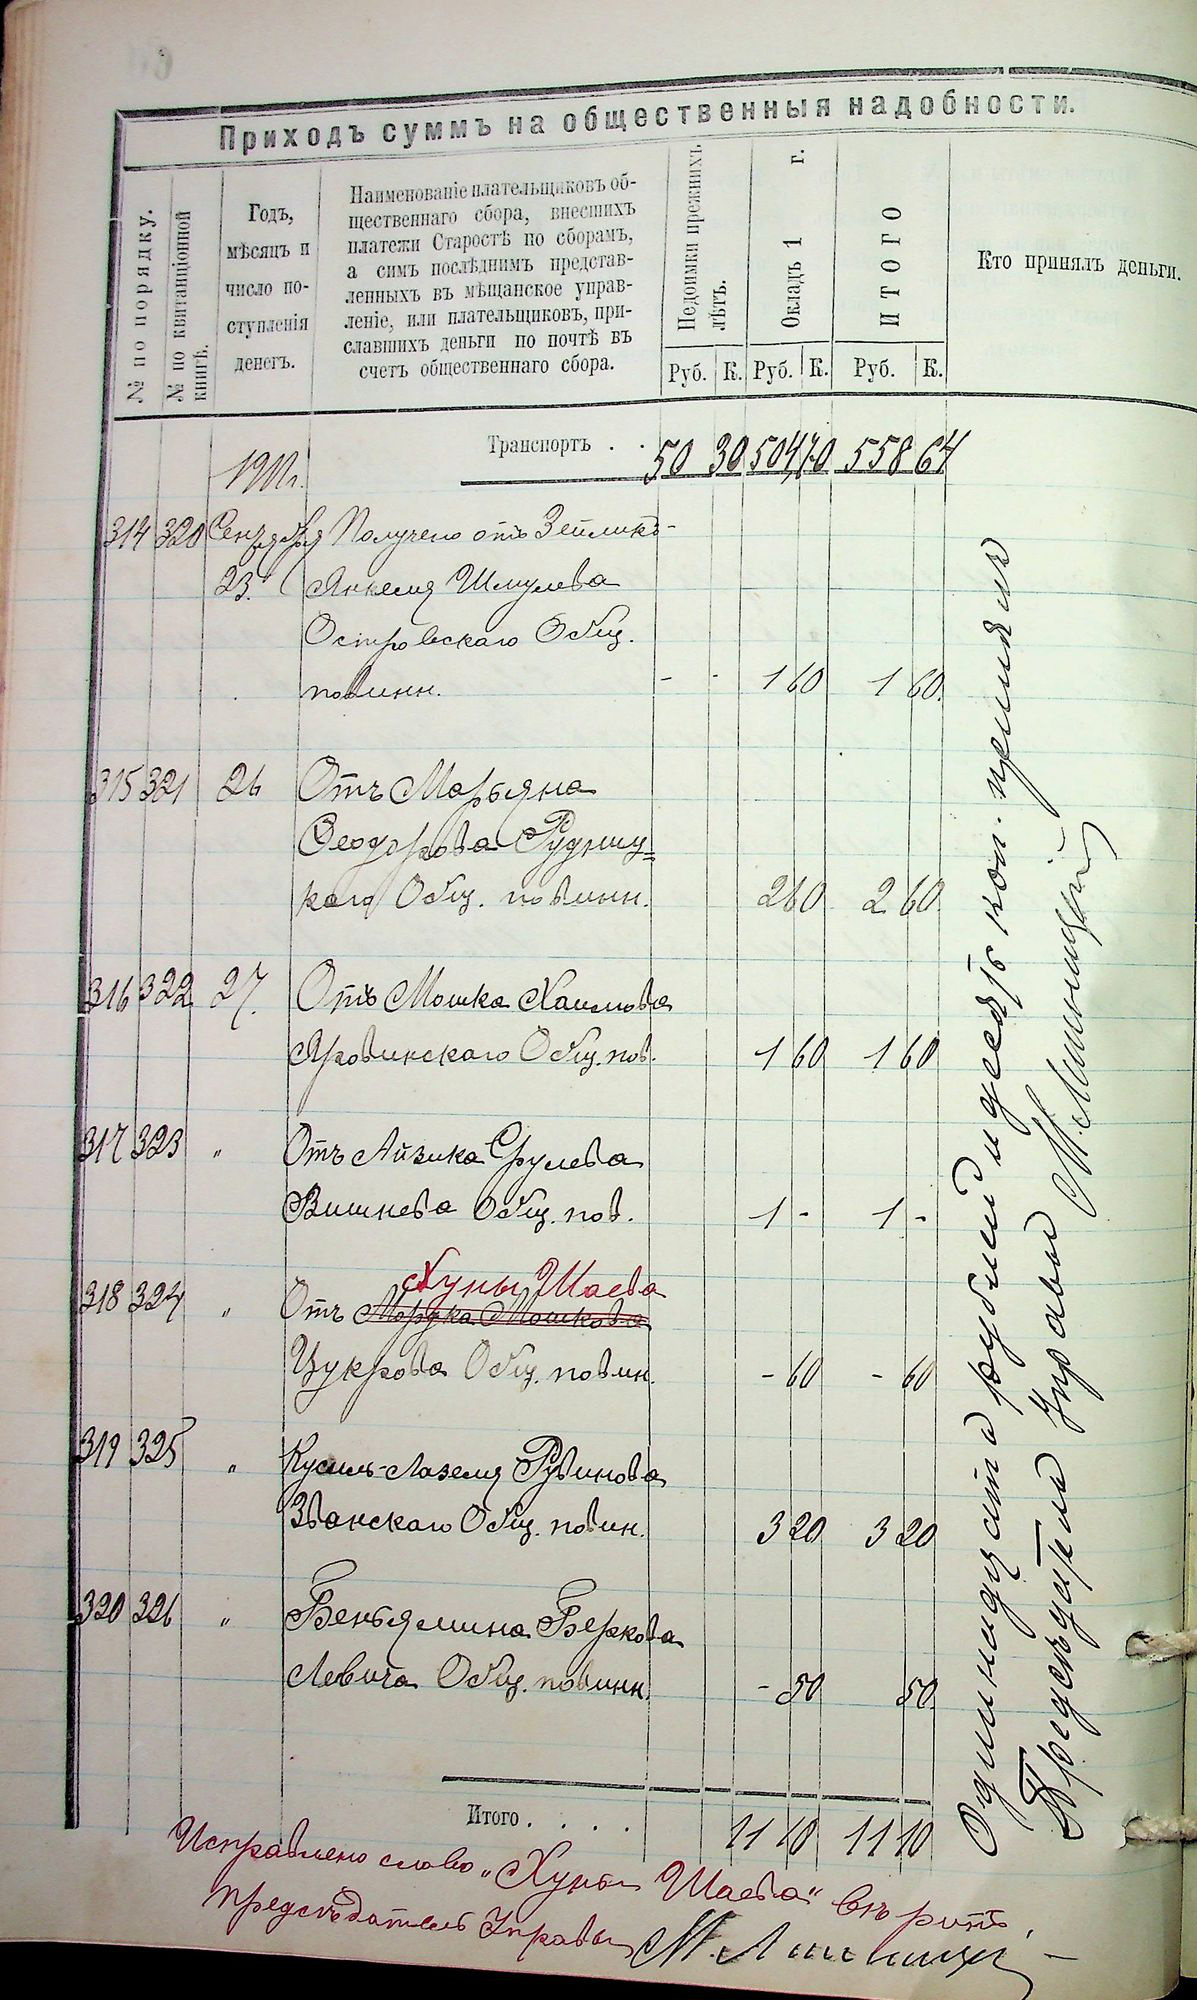 Приходъ суммъ на общественныя надобности.
№ по порядку.
№ по квитанціонной
книгѣ.
Годъ,
мѣсяцъ и
число по-
ступленія
денегъ.
Наименованіе плательщиковъ об-
щественнаго сбора, внесшихъ
платежи Старостѣ по сборамъ,
а симъ послѣднимъ представ-
ленныхъ въ мѣщанское управ-
леніе, или плательщиковъ, при-
славшихъ деньги по почтѣ въ
счетъ общественнаго сбора.
Недоимки прежнихъ
лѣтъ.
Окладъ 1 г.
ИТОГО
Кто принялъ деньги.
Руб. К. Руб. К. Руб. К.
Транспортъ . . 50 30 504 70 558 64
314 320 Сентября Получено отъ Зейликъ-
23. Янкеля Шмулева
Островскаго Общ.
повинн. - - 1 60 1 60
315 321 26 Отъ Марьяна
Ѳеодорова
каго Общ. повинн. 2 60 2 60
316 322 27. Отъ Мошка Хаимова
Яровинскаго Общ. пов. 1 60 1 60
317 323 " Отъ Айзика Срулева
Вишнева Общ. пов. 1 - 1 -
Хуны Шаева
318 324 " Отъ Мордка Мошкова
Цукрова Общ. повин. - 60 - 60
319 325 " Кусиль-Лазеля Рувинова
Званскаго Общ. повин. 3 20 3 20
320 326 " Беньямина Беркова
Левича Общ. повинн. - 50 50
Итого . . . . 11 10 11 10
Одиннадцать рублей и десять коп. принялъ
Предсѣдатель Управы
Исправлено слово "Хуны Шаева" вѣрить.
Предсѣдатель Управы